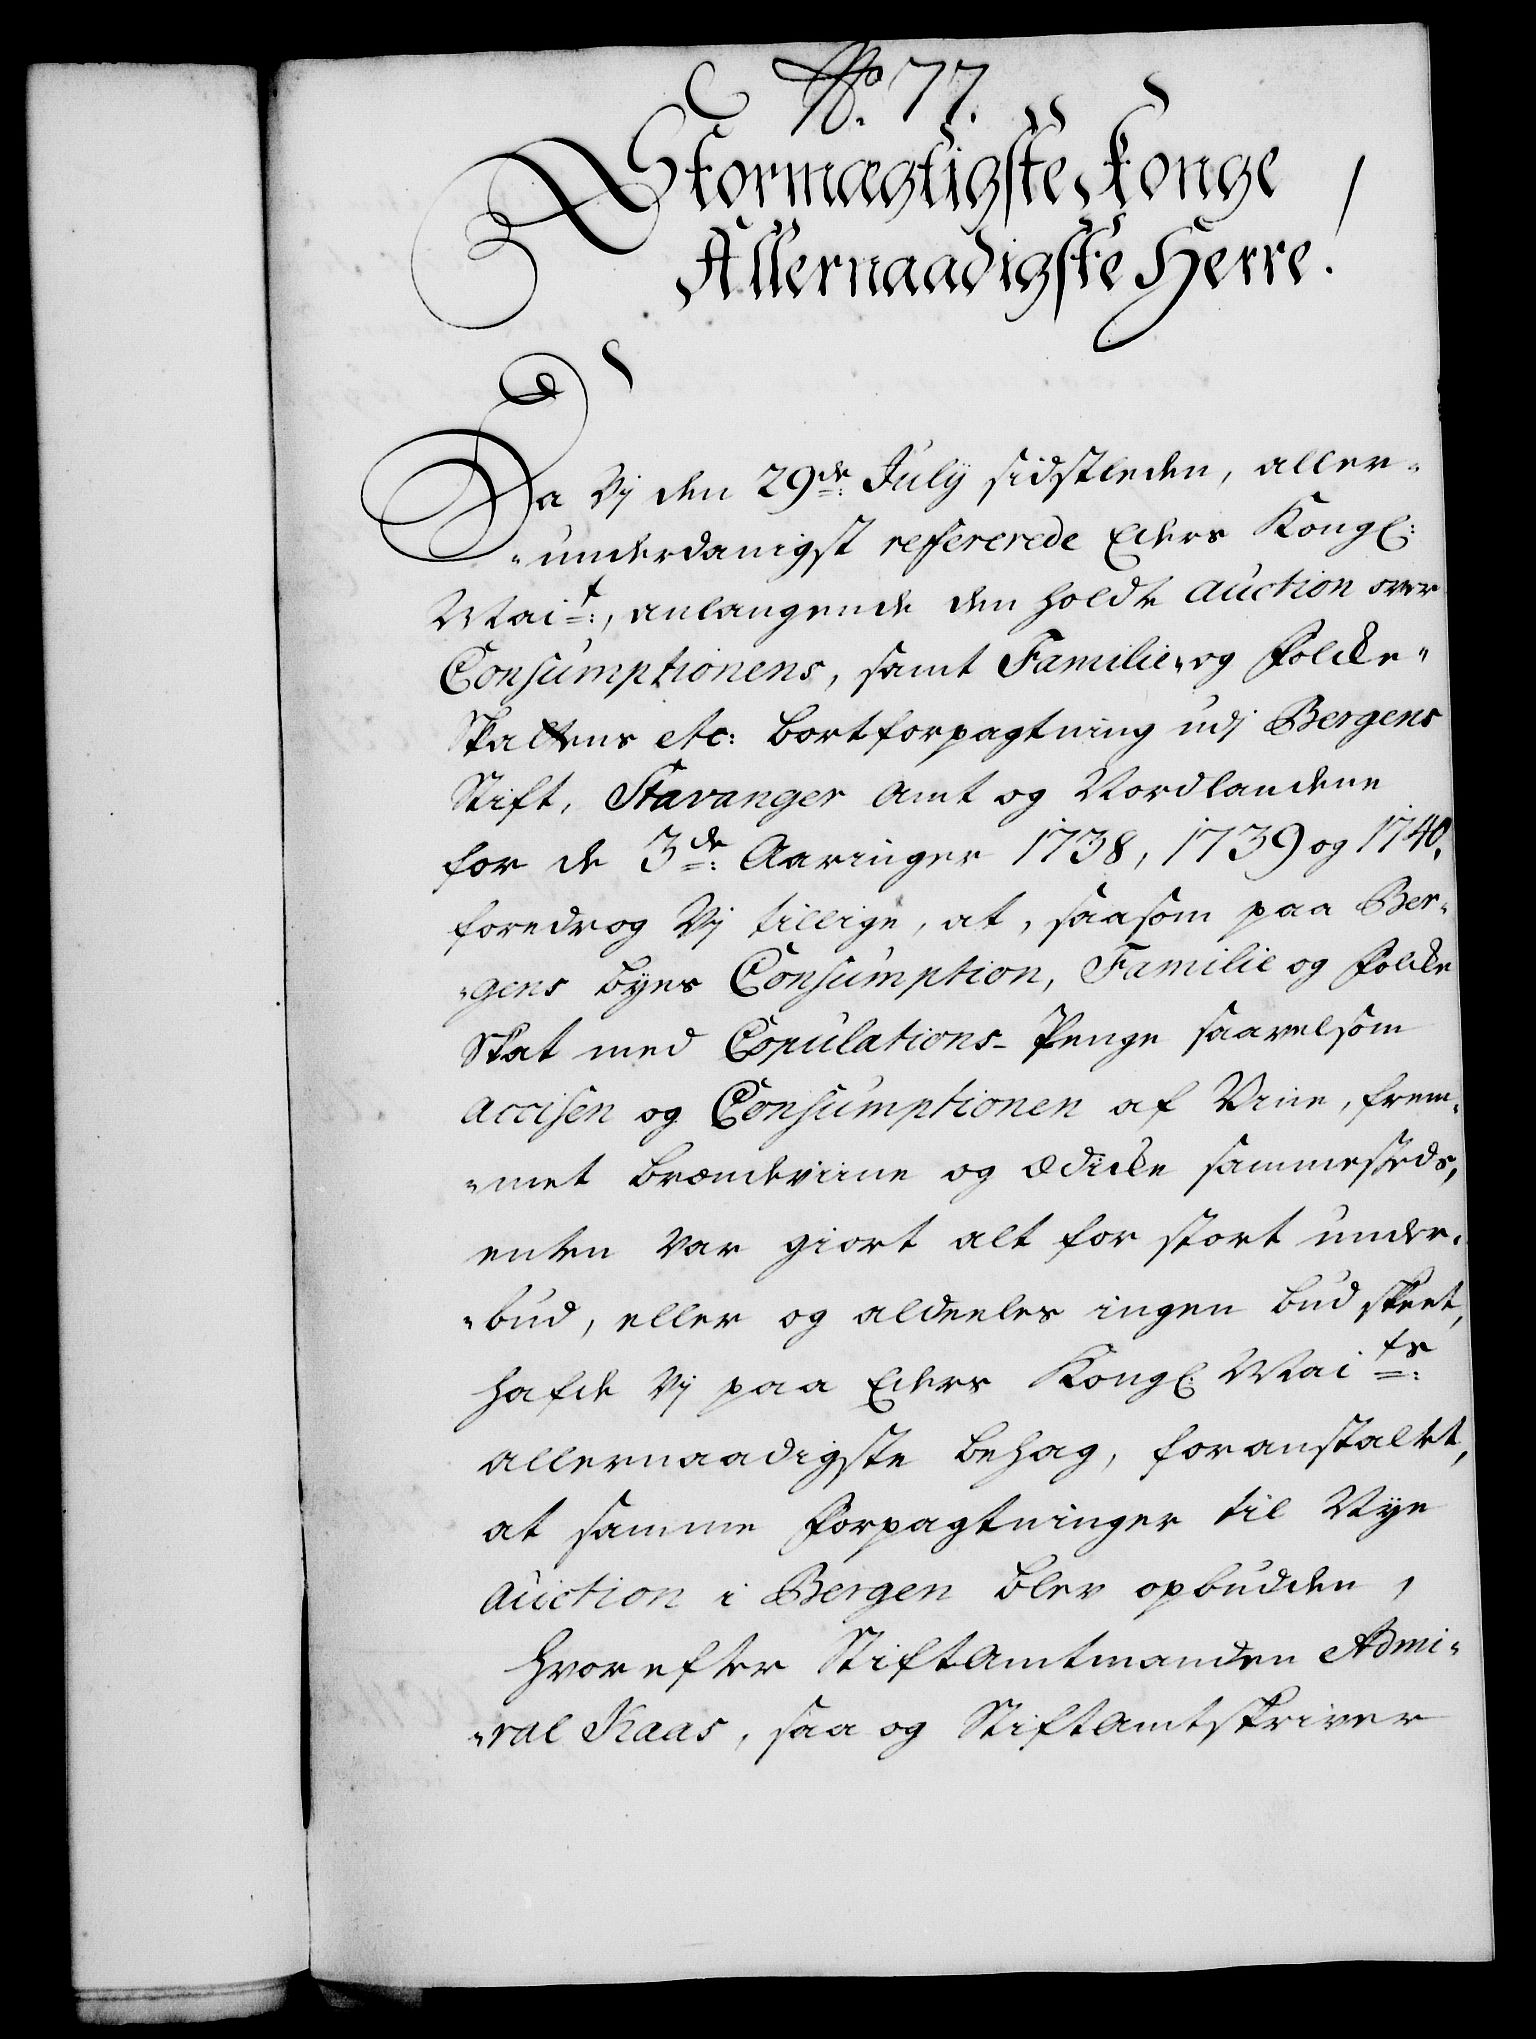 No. 77.
Stormægtigste Konge
Allernaadigste Herre!
Da Vj den 29de July sidstleden, aller-
-underdanigst reffererede Eders Kongl:
Mait:, anlangende den holdte Auction over
Consumptionens, samt Familie- og Folcke-
Skattens etc: bortforpagtning udj Bergens
Stift, Stavanger Amt og Nordlandene
for de 3de: Aaringer 1738, 1739 og 1740,
foredrog Vj tillige, at, saasom paa Ber-
-gens Byes Consumption, Familie og Folcke
Skat med Copulations-Penge saavelsom
Accisen og Consumptionen af Viin, frem-
-met Brændeviin og Ædicke sammesteds,
enten var giort alt for stort under-
-bud, eller og aldeeles ingen bud skeet,
hafde Vj paa Eders Kongl: Maits:
allernaadigste behag, foranstaltet,
at samme Forpagtninger til Nye
Auction i Bergen blev opbudden,
Hvorefter StiftAmtmanden Admi-
-ral Kaas, saa og StiftAmtskriver